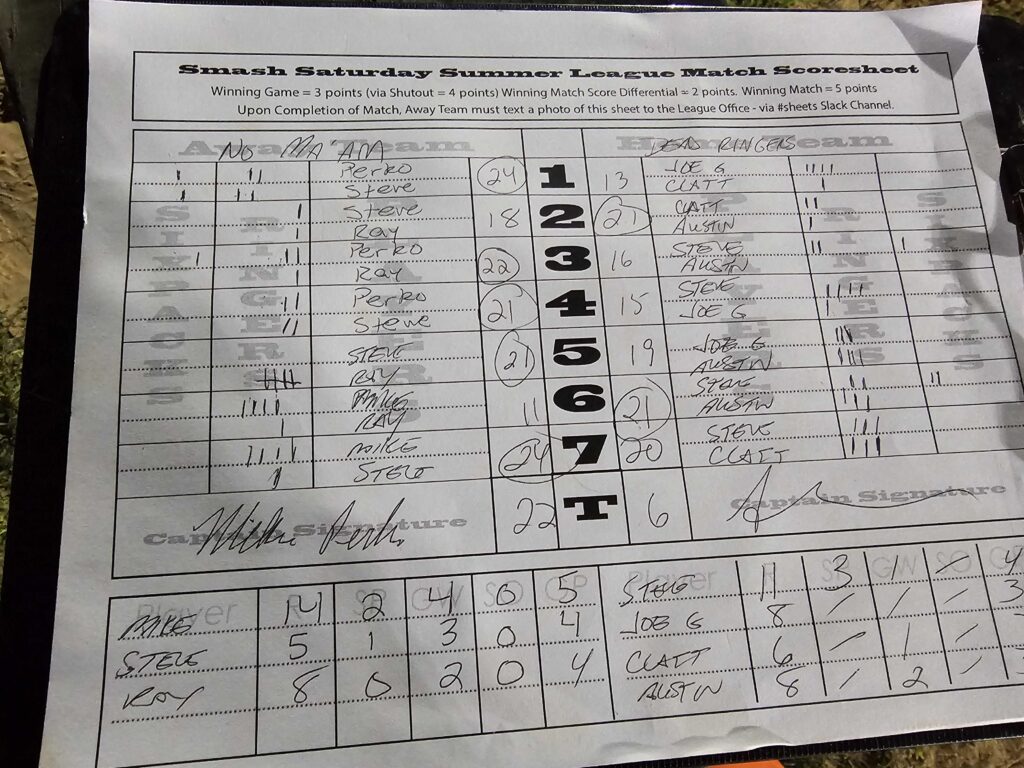 Smash Saturday Summer League Match Scoresheet
Winning Game = 3 points (via Shutout = 4 points) Winning Match Score Differential = 2 points. Winning Match = 5 points
Upon Completion of Match, Away Team must text a photo of this sheet to the League Office - via #sheets Slack Channel.
Away Team Home Team
NO MA'AM DEAD RINGERS
SIXPACKS RINGERS PLAYERS PLAYERS RINGERS SIXPACKS
Perko 24 1 13 JOE G
Steve CLATT
Steve 18 2 21 CLATT
Ray AUSTIN
Perko 22 3 16 STEVE
Ray AUSTIN
Perko 21 4 15 STEVE
Steve JOE G
STEVE 21 5 19 JOE G
RAY AUSTIN
MIKE 11 6 21 STEVE
RAY AUSTIN
MIKE 24 7 20 STEVE
STEVE CLATT
22 T 6
Captain Signature Captain Signature
Player R SP GW SO GP Player R SP GW SO
MIKE 14 2 4 0 5 STEVE 11 3 1 4
STEVE 5 1 3 0 4 JOE G 8 / / / 3
RAY 8 0 2 0 4 CLATT 6 / 1 /
AUSTIN 8 / 2 /